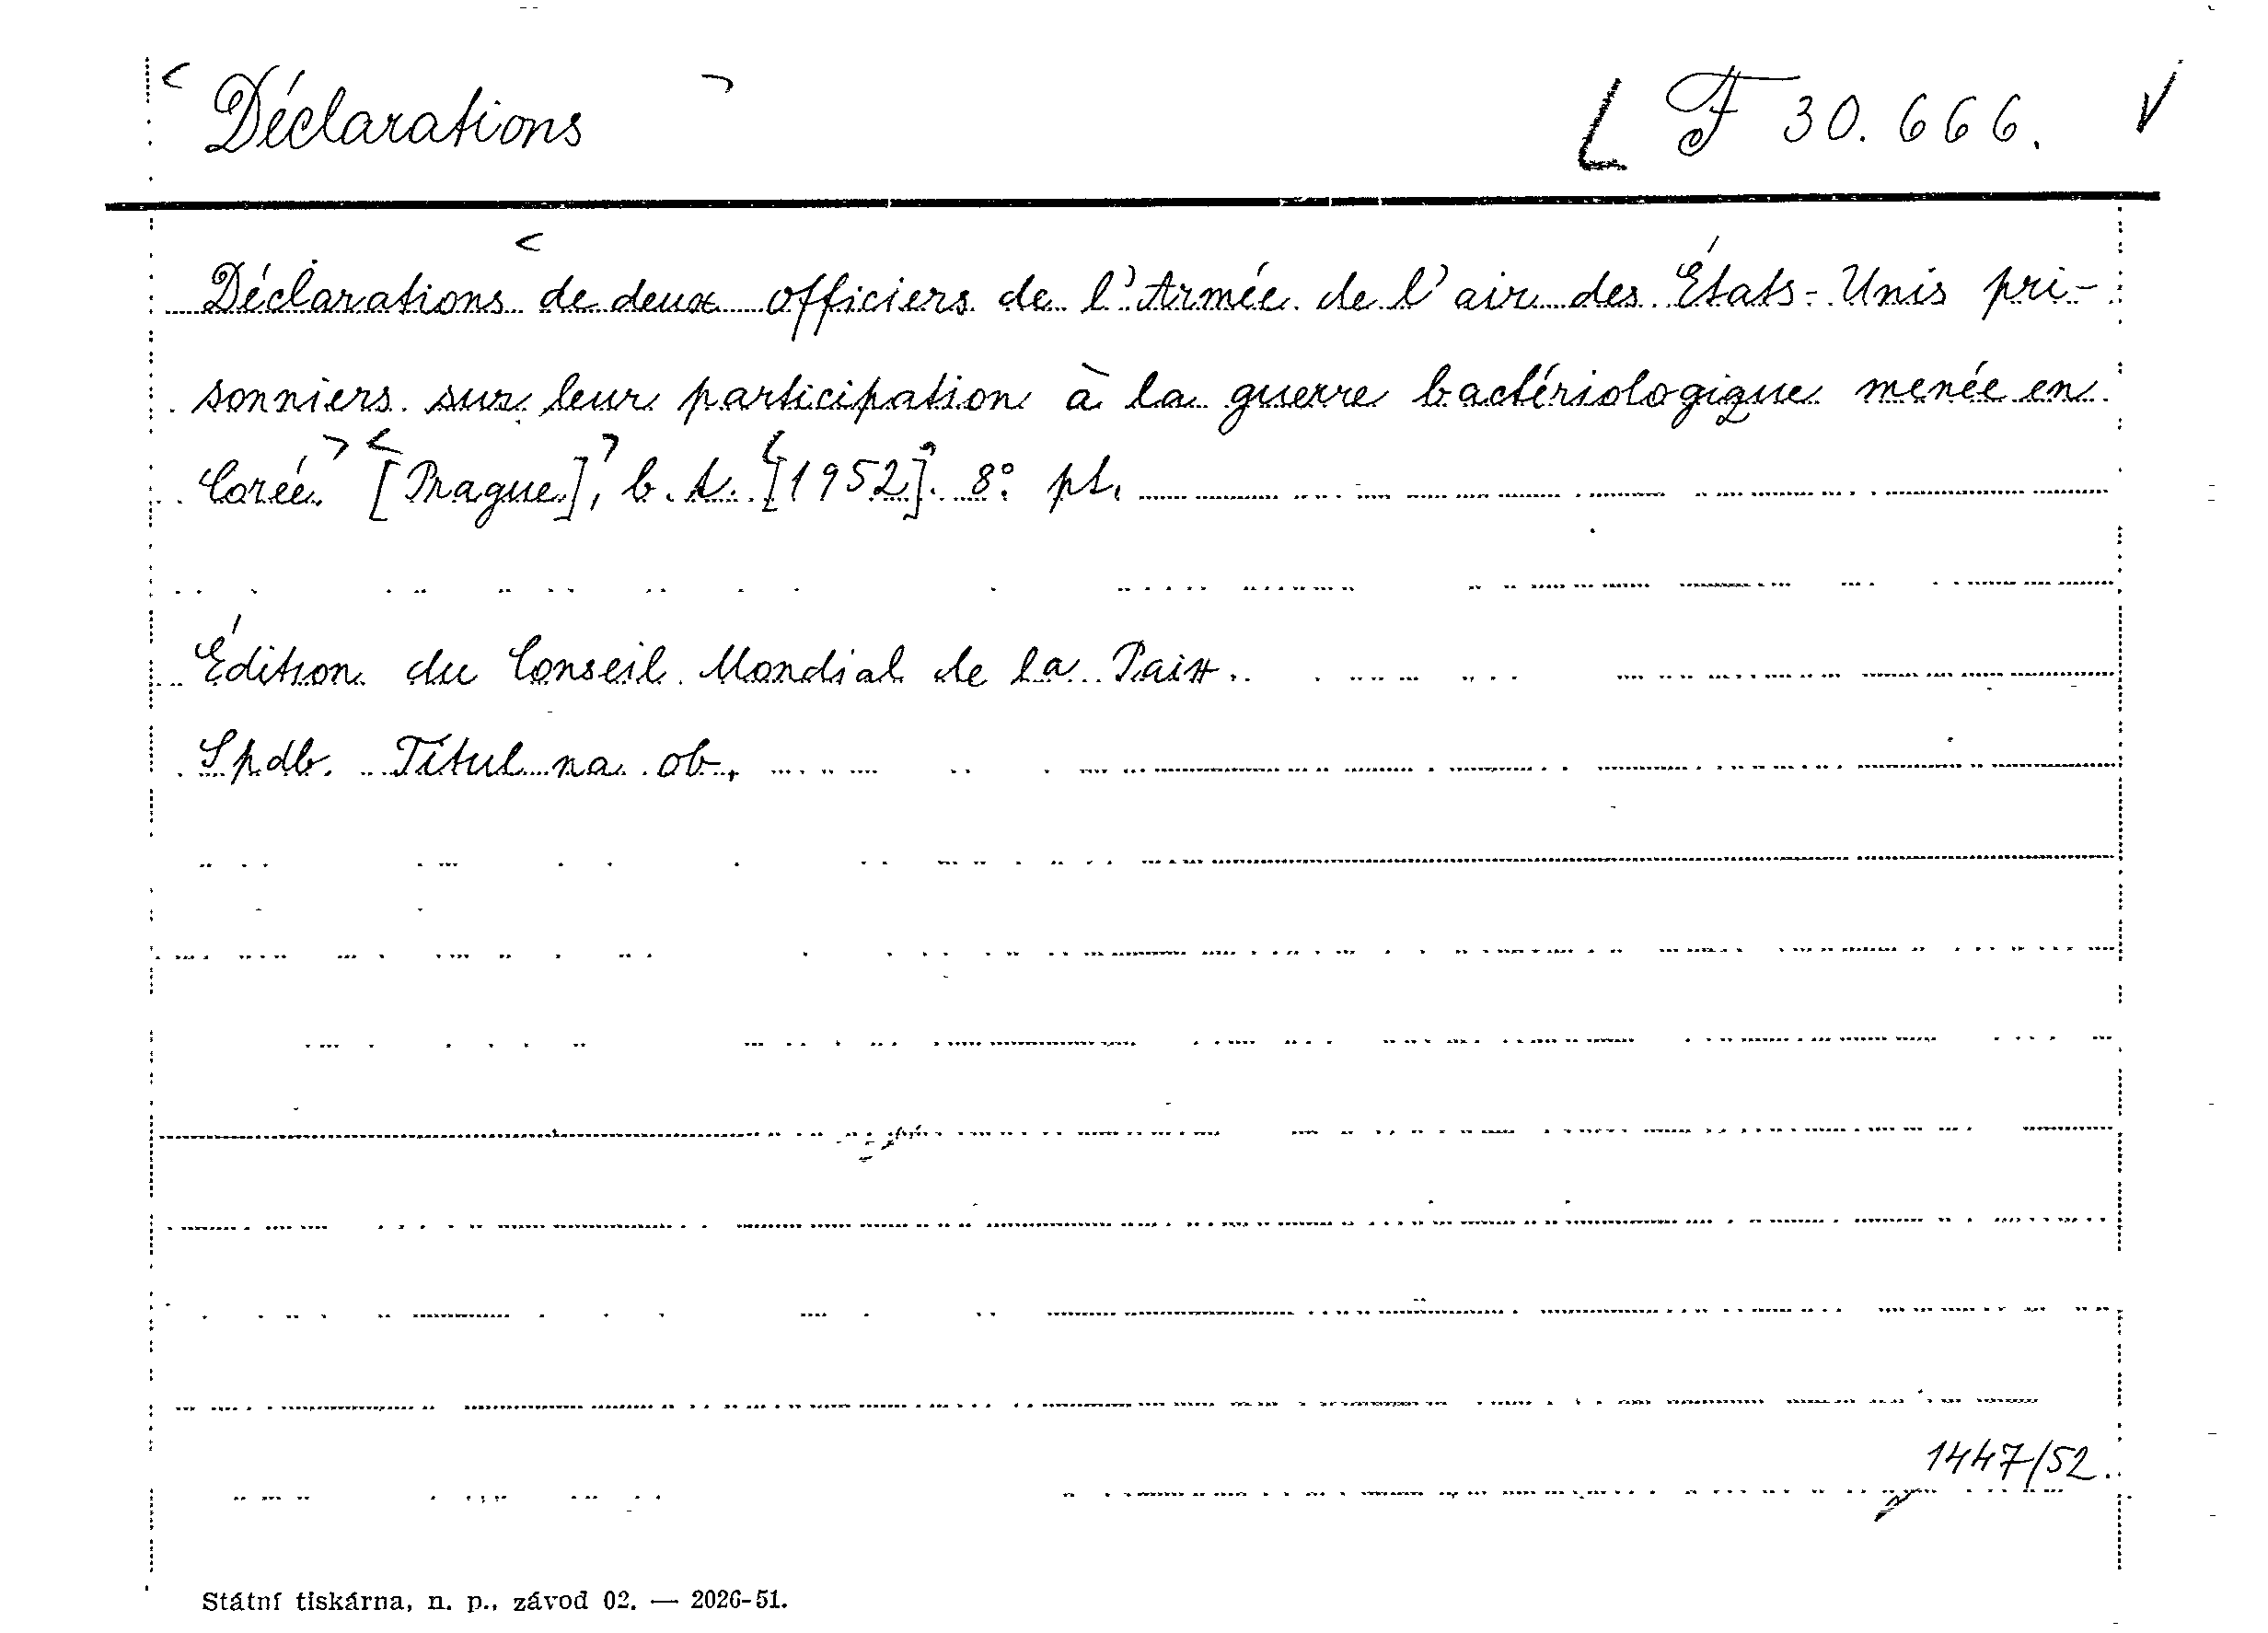 Déclarations F 30.666.
Déclarations de deux officiers de l'Armée de l'air des États-Unis pri-
sonniers sur leur participation à la guerre bactériologique menée en
Corée. [Prague], b. t. [1952]. 8° pt.
Édition du Conseil Mondial de la Paix.
Spdb. Titul na ob.
1447/52.
Státní tiskárna, n. p., závod 02. — 2026-51.